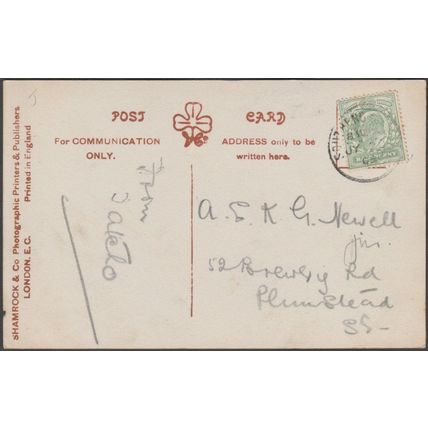 POST CARD
For COMMUNICATION ONLY.
ADDRESS only to be written here.
SHAMROCK & Co Photographic Printers & Publishers.
LONDON, E.C. Printed in England
From
A. E. K. G. Newell
Jnr.
52 Rd
Plumstead